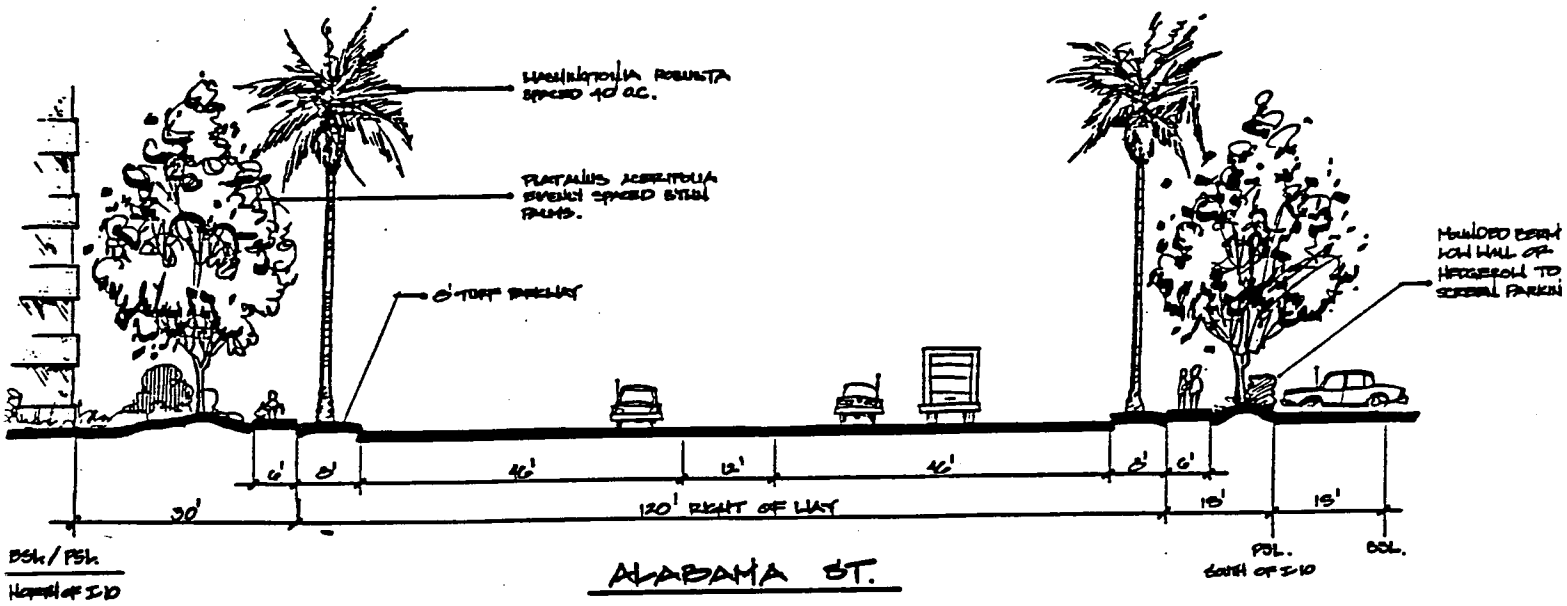 WASHINGTONIA ROBUSTA
SPACED 40' O.C.
PLATANUS ACERIFOLIA
EVENLY SPACED BTWN
PALMS.
MOUNDED BERM
LOW WALL OR
HEDGEROW TO
SCREEN PARKIN
8' TURF PARKWAY
6' 8' 46' 12' 46' 8' 6'
30' 120' RIGHT OF WAY 15' 15'
BSL/PSL
NORTH OF I-10
ALABAMA ST.
PSL.
SOUTH OF I-10
BSL.